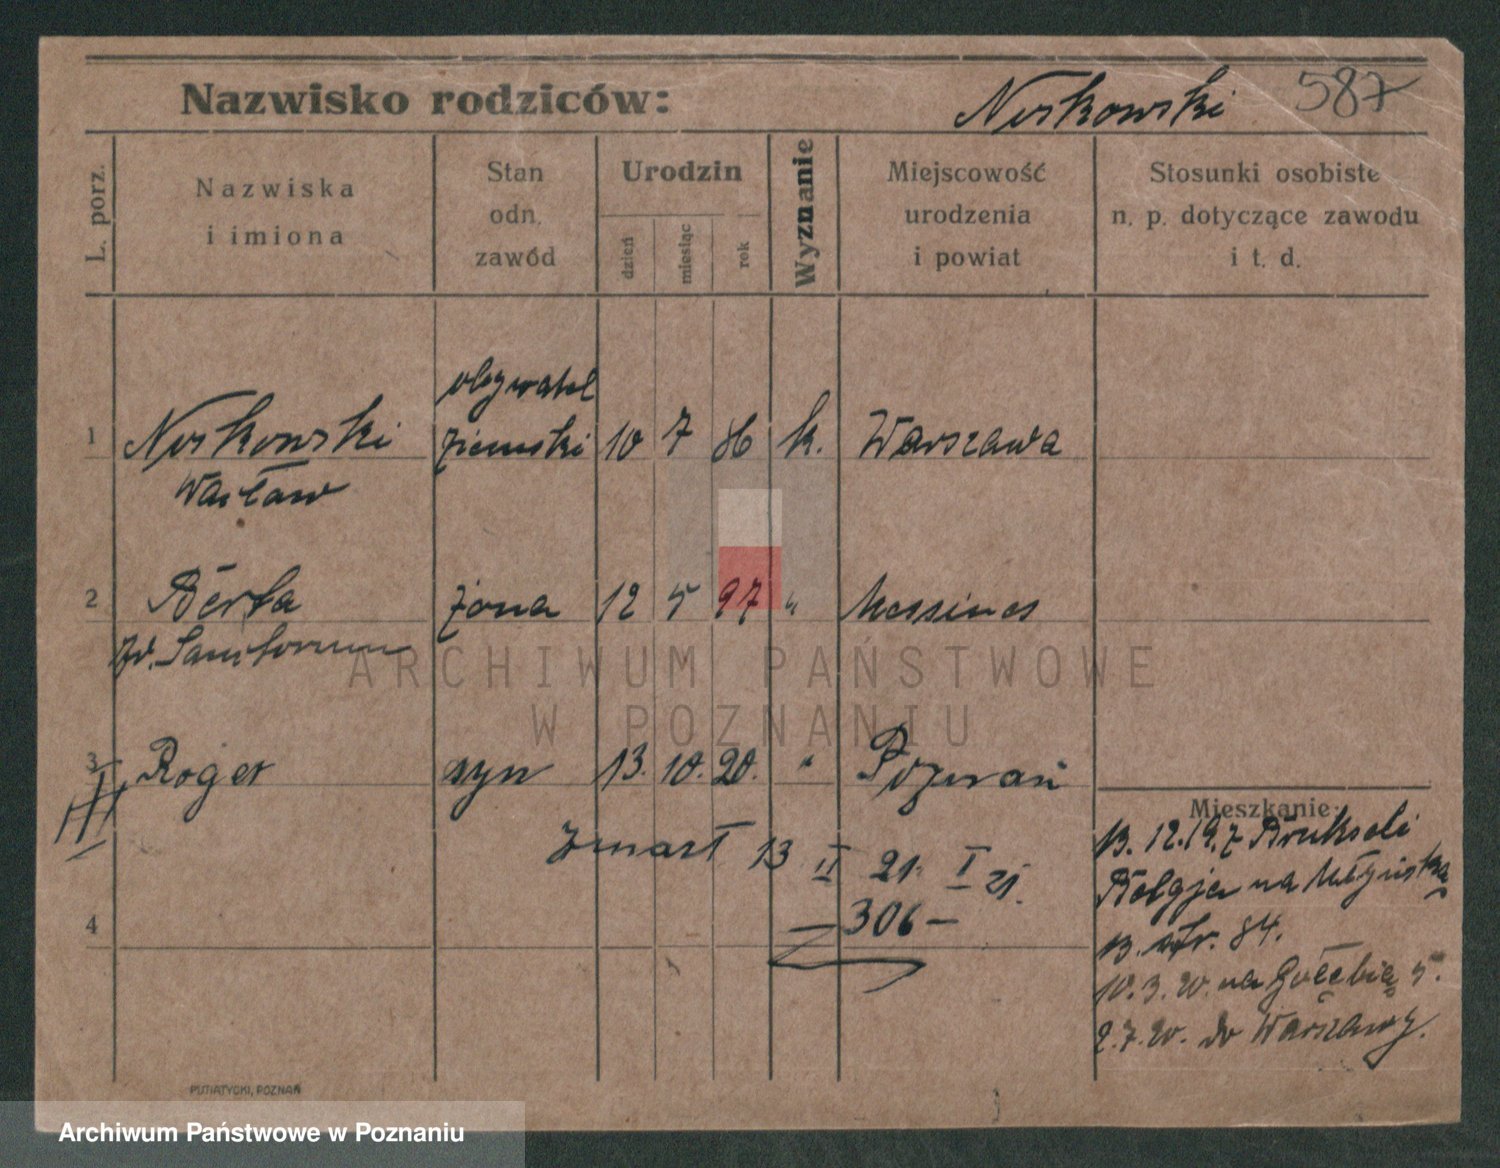 Nazwisko rodziców: Noskowski 587
L. porz.
Nazwiska
i imiona
Stan
odn.
zawód
Urodzin
dzień
miesiąc
rok
Wyznanie
Miejscowość
urodzenia
i powiat
Stosunki osobiste
n. p. dotyczące zawodu
i t. d.
obywatel
1 Noskowski ziemski 10 7 86 k. Warszawa
Wacław
2 Berta żona 12 5 97 " Messines
3 Roger syn 13. 10. 20. " Poznań
zmarł 13 II 21. I 21.
— 306 —
4
Mieszkanie:
13. 12. 19. z Brukseli
Belgja na
84.
10. 3. 20. na Gołębią 5.
2. 7. 20. do Warszawy.
PUTIATYCKI, POZNAŃ
ARCHIWUM PAŃSTWOWE
W POZNANIU
Archiwum Państwowe w Poznaniu